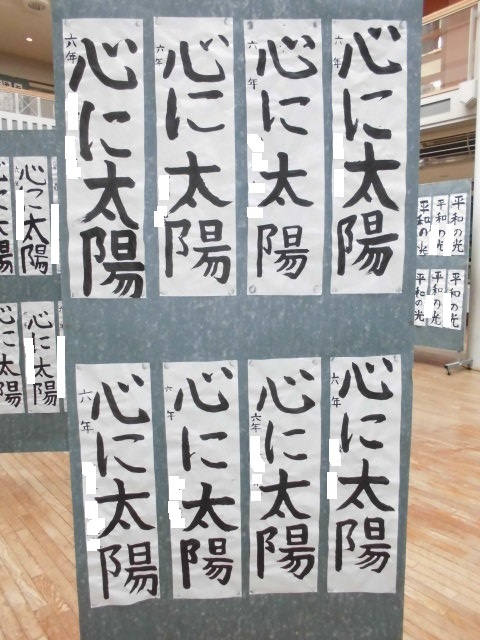 心に太陽
六年
心に太陽
六年
心に太陽
六年
心に太陽
六年
心に太陽
六年
心に太陽
六年
心に太陽
六年
心に太陽
六年
心に太陽
心に太陽
平和の光
平和の光
平和の光
平和の光
平和の光
平和の光